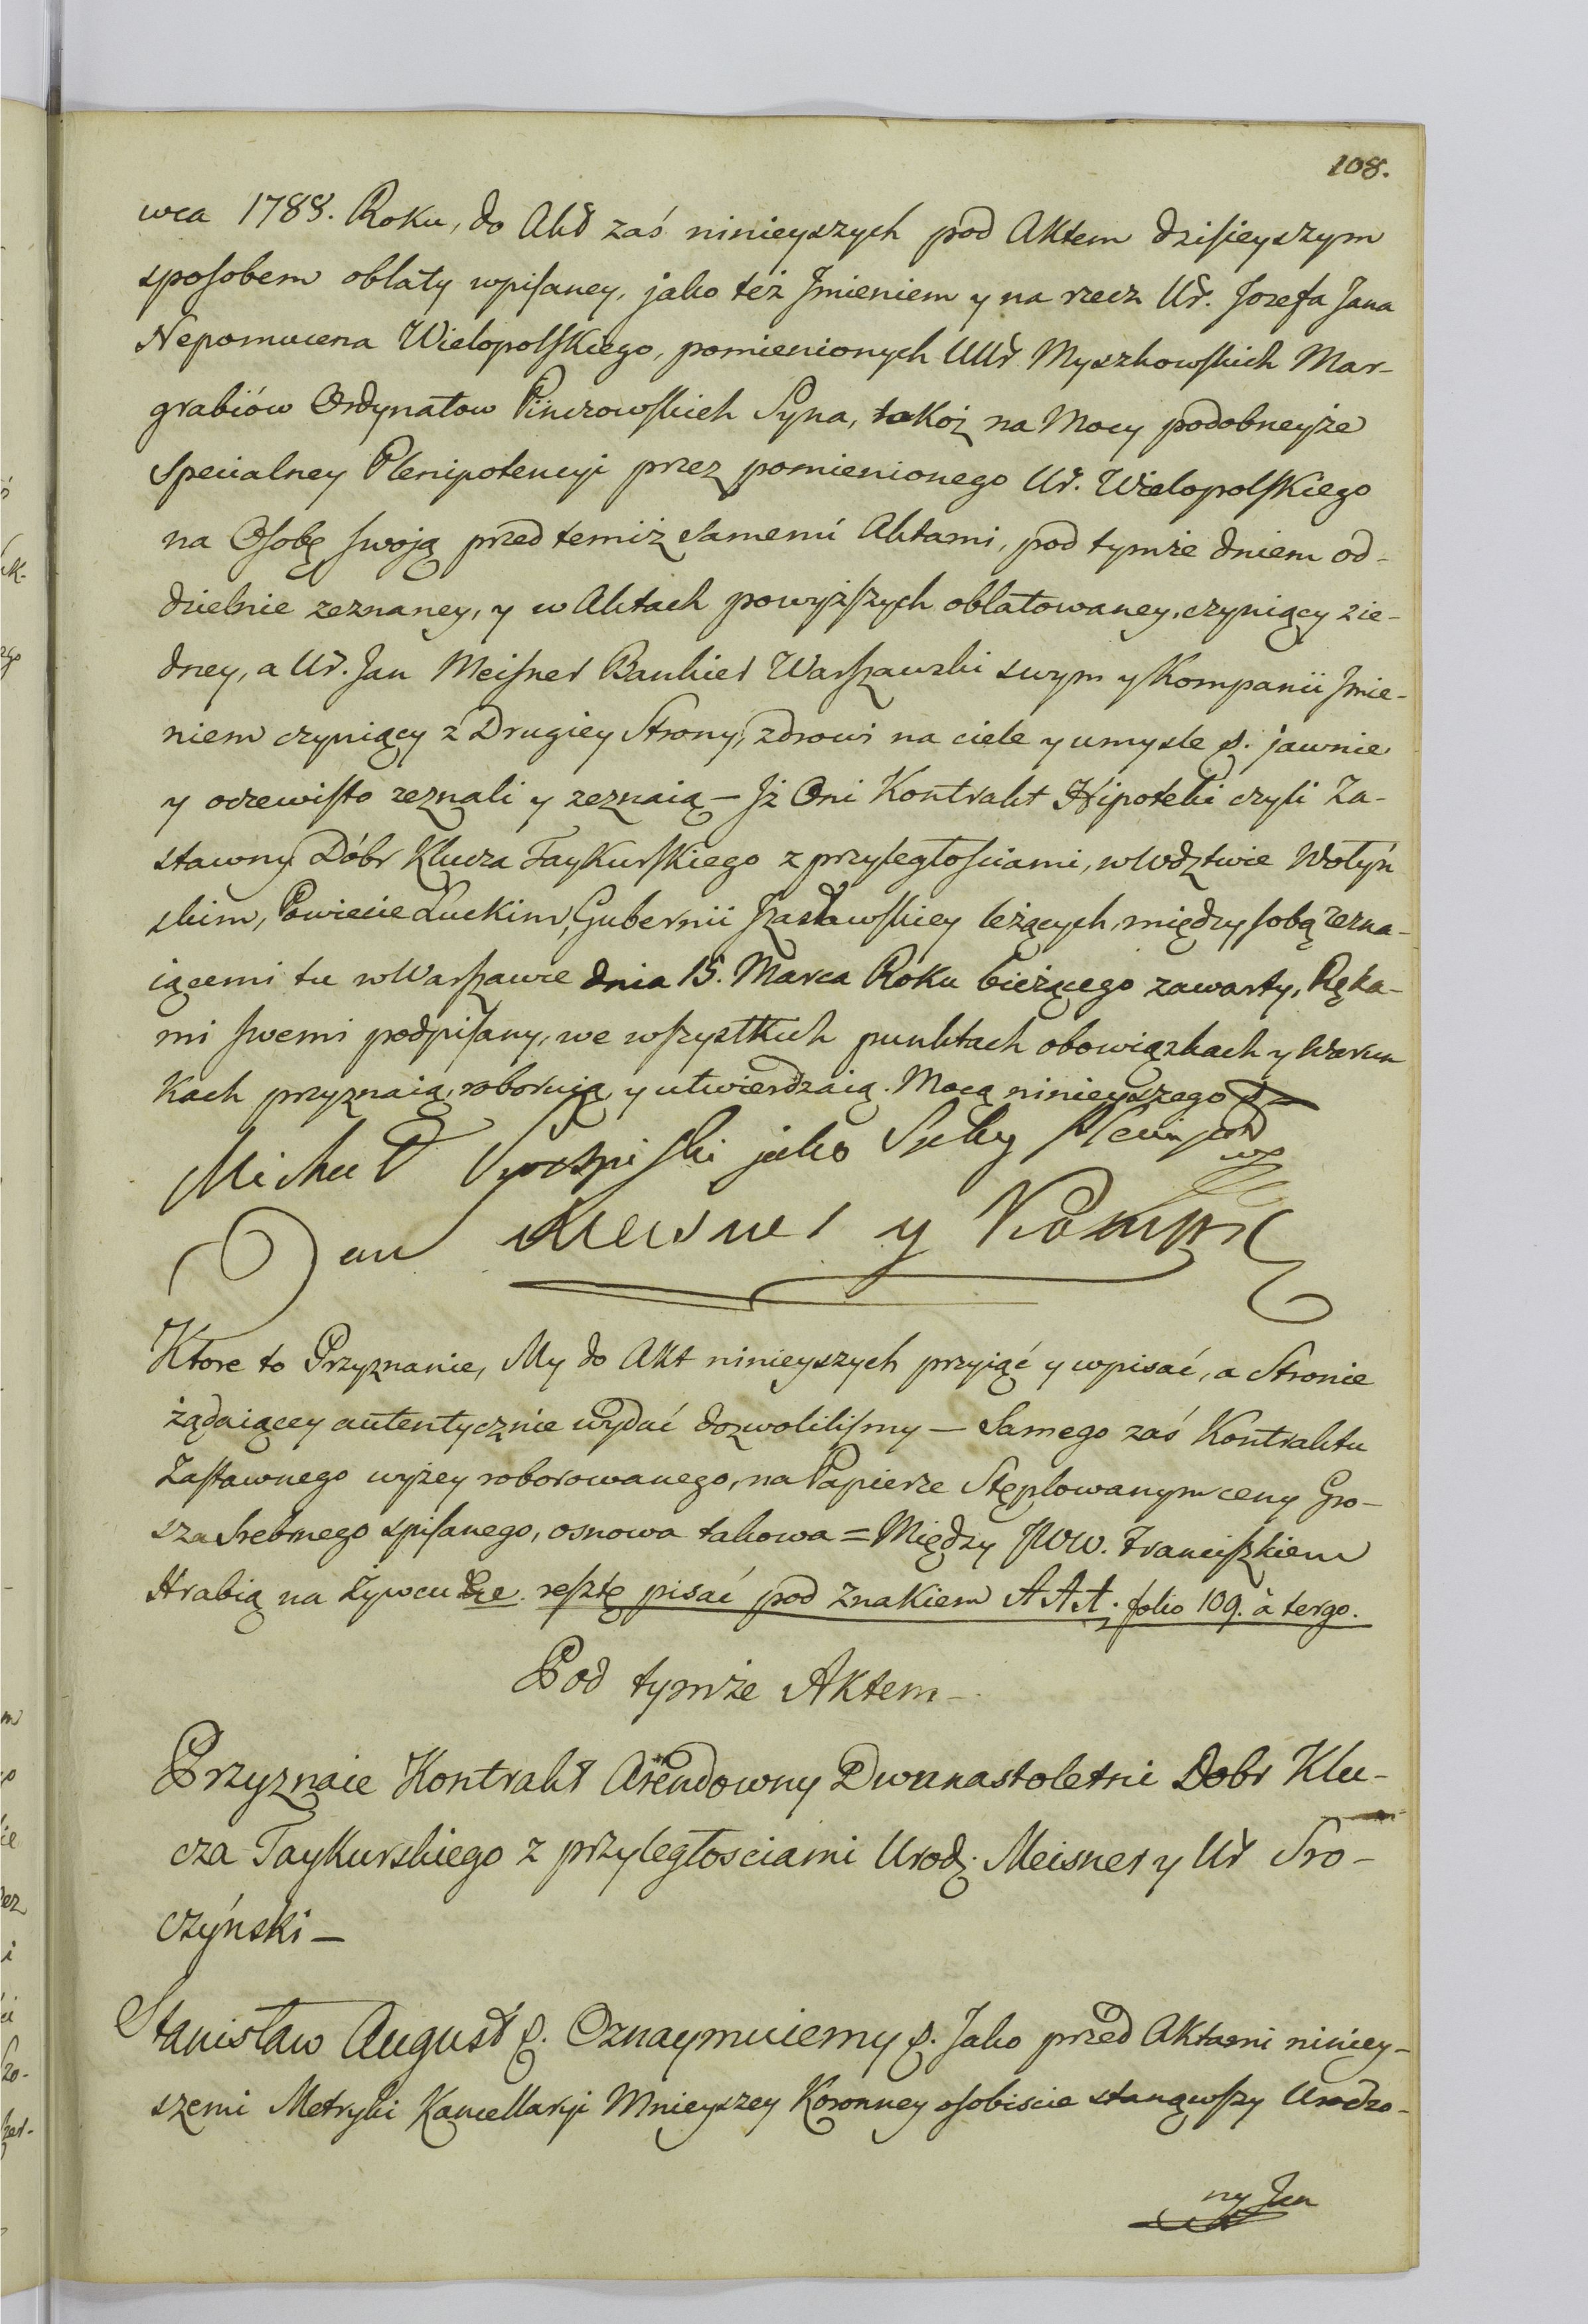 108.
wca 1788. Roku, do Akt zaś ninieyszych pod Aktem dzisieyszym
sposobem oblaty wpisaney, jako też Jmieniem y na rzecz Ur. Jozefa Jana
Nepomucena Wielopolskiego, pomienionych UUr Myszkowskich Mar-
grabiów Ordynatow Pinczowskich Syna, takoż na Mocy podobneyże
Specialney Plenipotencyi przez pomienionego Ur. Wielopolskiego
na Osobę swoją przed temiż samemi Aktami, pod tymże dniem od-
dzielnie zeznaney, y w Aktach powyższych oblatowaney, czyniący z ie-
dney, a Ur. Jan Meisner Bankier Warszawski swym y Kompanii Jmie-
niem czyniący z Drugiey Strony, zdrowi na ciele y umysle &. jawnie
y oczewisto zeznali y zeznaią — Jż Oni Kontrakt Hipoteki czyli Za-
stawny Dóbr Klucza Taykurskiego z przyległościami, w Wdztwie Wołyń
skim, Powiecie Łuckim, Gubernii Jzasławskiey leżących, między sobą zezna-
iącemi tu w Warszawie dnia 15. Marca Roku bieżącego zawarty, Ręka-
mi swemi podpisany, we wszystkich punktach obowiązkach y Warun
kach przyznaią, roboruią, y utwierdzaią. Mocą ninieyszego &
Michał jako
Jan Meisner y Komp
Ktore to Przyznanie, My do Akt ninieyszych przyiąć y wpisać, a Stronie
żądaiącey autentycznie wydać dozwolilismy — Samego zaś Kontraktu
Zastawnego wyżey roborowanego, na Papierze Stęplowanym ceny Gro-
sza Srebrnego spisanego, osnowa takowa = Między JWW. Franciszkiem
Hrabią na Żywcu &c. resztę pisać pod Znakiem AAA. folio 109. à tergo.
Pod tymże Aktem —
Przyznaie Kontrakt Arendowny Dwunastoletni Dobr Klu-
cza Taykurskiego z przyległosciami Urodz. Meisner y Ur Sro-
czyński —
Stanisław August &. Oznaymuiemy &. Jako przed Aktami niniey-
szemi Metryki Kancellaryi Mnieyszey Koronney osobiscie stanąwszy Urodzo-
ny Jan